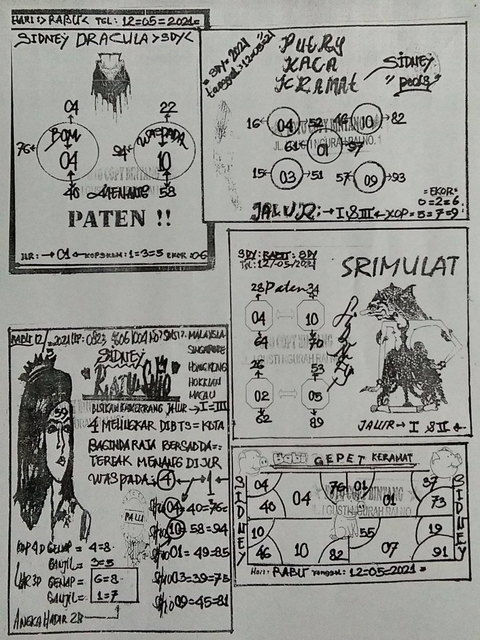 HARI :> RABU < TGL : 12=05=2021=
SIDNEY DRACULA > SDY <
04 22
BOM WASPADA
76 04 94 10
40 MENANG 58
PATEN !!
JLR : → 01 ← KOP : 1=3=5 EKOR : 06
= SDY = 2021
tanggal: 12=05=21
PUTRY
KACA
KRAMAT
SIDNEY
"pools"
16 04 52 46 10 82
61 01 97
15 03 51 57 09 93
= EKOR =
0=2=6
JALUR : → I & III ← KOP = 5=7=9
SDY : RABU : SDY
TGL : 12/05/2021
SRIMULAT
28 Paten 34
04 10
64 70
26 53
02 05
62 89
JALUR → I & II ←
RABU 12/
SIDNEY
RATU
MALAYSIA
SINGAPORE
HONGKONG
HOKKIAN
MACAU
59
JALUR → I = III
4 MELINGKAR DI BTS = KOTA
BAGINDA RAJA BERSABDA =
TERLAK MENANG DI JLR
WASPADA : 4
04 = 40 = 76 =
10 = 58 = 94
01 = 49 = 85
03 = 39 = 75
09 = 45 = 81
PALU
KOP 4D GENAP = 4=8
GANJIL = 3=5
LAR 3D GENAP = 6=8
GANJIL = 1=7
ANGKA HADIR 28
Habi GEPET KERAMAT
SIDNEY
40 04 76 01 01 37
04 73
10 55 19
46 10 82 07 91
SIDNEY
Hari : RABU tanggal : 12=05=2021=